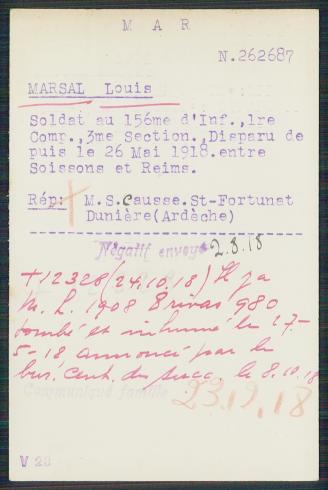 M A R
N.262687
MARSAL Louis
Soldat au 156me d'Inf.,1re
Comp.,3me Section.,Disparu de
puis le 26 Mai 1918.entre
Soissons et Reims.
Rép: M.S.Causse.St-Fortunat
Dunière(Ardèche)
Négatif envoyé 2.8.18
+12328(24.10.18)
M. L. 1908 Privas 980
tombé et inhumé le 27-
5-18 annoncé par le
bur. Cent. de le 8.10.18
Communiqué famille
23.19.18
V 23